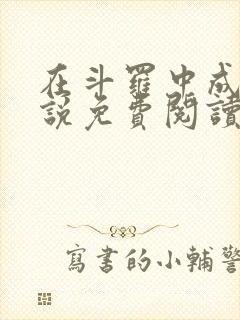 在斗羅中成
說免費閱讀
寫書的小輔警